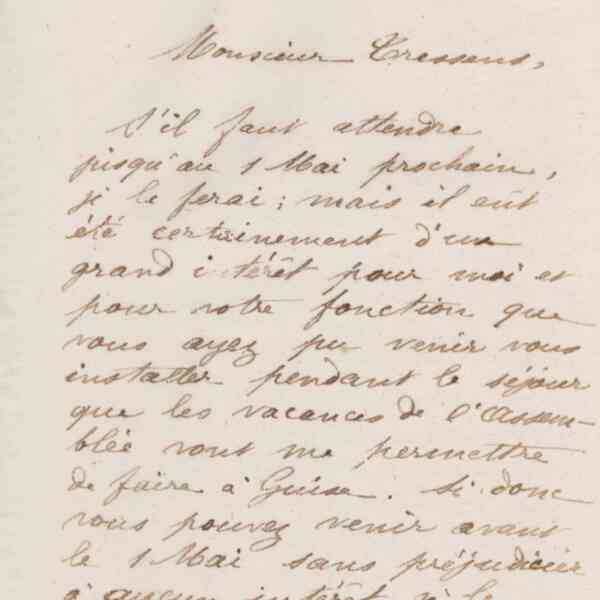 Monsieur Tressens,
S'il faut attendre
jusqu'au 1 Mai prochain,
je le ferai ; mais il eût
été certainement d'un
grand intérêt pour moi et
pour votre fonction que
vous ayez pu venir vous
installer pendant le séjour
que les vacances de l'Assem-
blée vont me permettre
de faire à Guise. Si donc
vous pouvez venir avant
le 1 Mai sans préjudicier
à aucun intérêt ni le